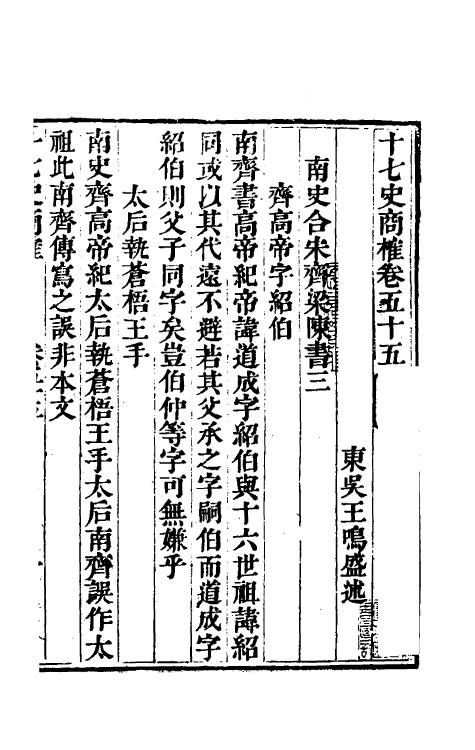 十七史商榷卷五十五
東吳王鳴盛述
南史合宋齊梁陳書三
齊高帝字紹伯
南齊書高帝紀帝諱道成字紹伯與十六世祖諱紹
同或以其代遠不避若其父承之字嗣伯而道成字
紹伯則父子同字矣豈伯仲等字可無嫌乎
太后執蒼梧王手
南史齊高帝紀太后執蒼梧王手太后南齊誤作太
祖此南齊傳寫之誤非本文
十七史商榷